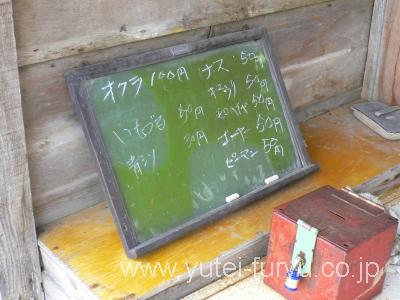 オクラ 100円 ナス 50円
キュウリ 50円
いちぢく 50円
50円
青ジソ 30円 ゴーヤー 50円
ピーマン 50円
www.yutei-furyu.co.jp